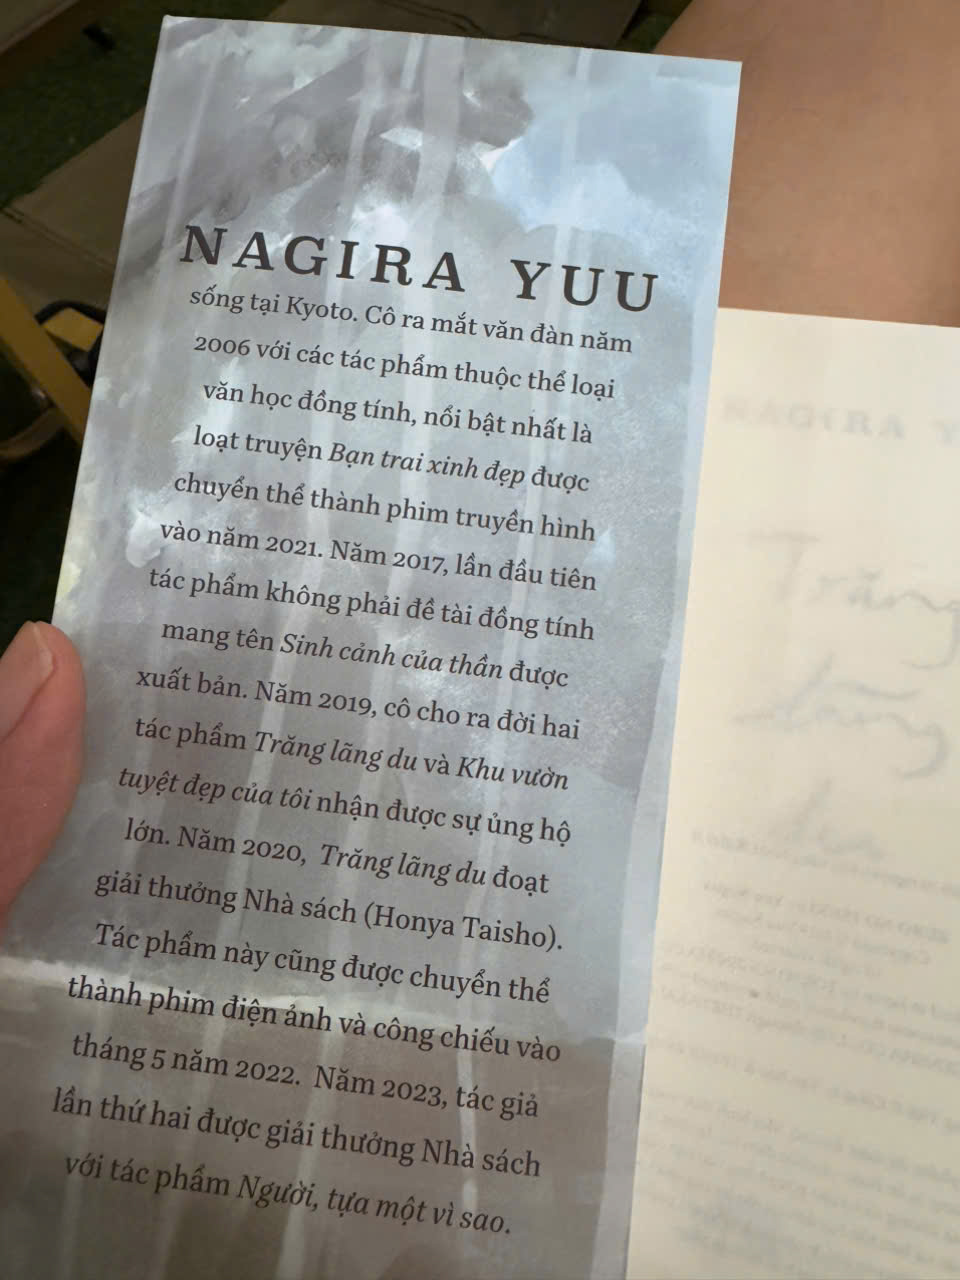 NAGIRA YUU
sống tại Kyoto. Cô ra mắt văn đàn năm
2006 với các tác phẩm thuộc thể loại
văn học đồng tính, nổi bật nhất là
loạt truyện Bạn trai xinh đẹp được
chuyển thể thành phim truyền hình
vào năm 2021. Năm 2017, lần đầu tiên
tác phẩm không phải đề tài đồng tính
mang tên Sinh cảnh của thần được
xuất bản. Năm 2019, cô cho ra đời hai
tác phẩm Trăng lãng du và Khu vườn
tuyệt đẹp của tôi nhận được sự ủng hộ
lớn. Năm 2020, Trăng lãng du đoạt
giải thưởng Nhà sách (Honya Taisho).
Tác phẩm này cũng được chuyển thể
thành phim điện ảnh và công chiếu vào
tháng 5 năm 2022. Năm 2023, tác giả
lần thứ hai được giải thưởng Nhà sách
với tác phẩm Người, tựa một vì sao.
NAGIRA Y
Trăng
lãng
du